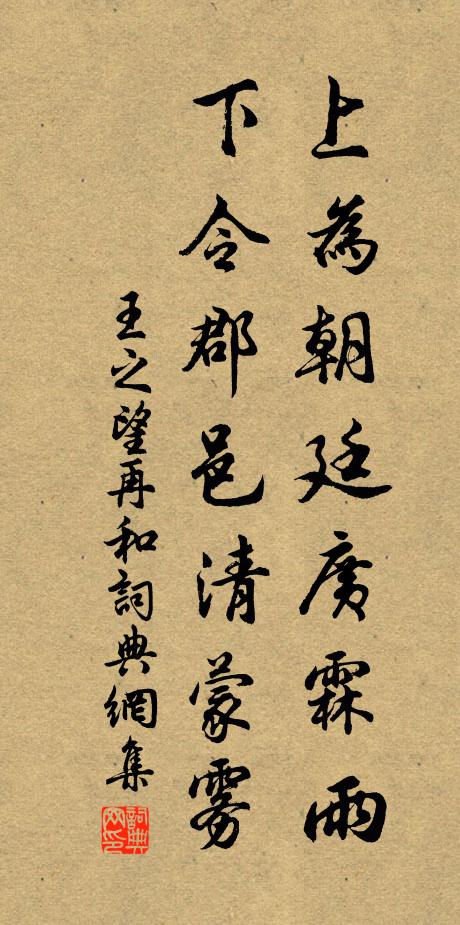 上為朝廷廣霖雨
下令郡邑清蒙霧
王之望再和詞典網集
詞典
网印